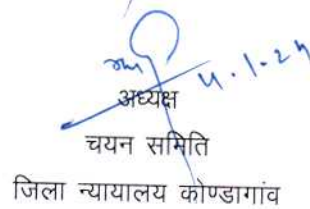 4.1.24
अध्यक्ष
चयन समिति
जिला न्यायालय कोण्डागांव